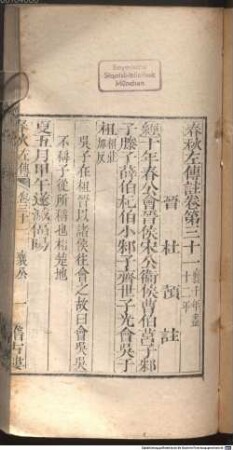 Bayerische
Staatsbibliothek
München
春秋左傳註卷第三十一 襄十年盡
十二年
晉 杜預 註
經十年春公會晉侯宋公衞侯曹伯莒子邾
子滕子薛伯杞伯小邾子齊世子光會吳子
柤 柤莊
加反
吳子在柤晉以諸侯往會之故曰會吳吳
不稱子從所稱也柤楚地
夏五月甲午遂滅偪陽
春秋左傳 卷三十一 襄公 一